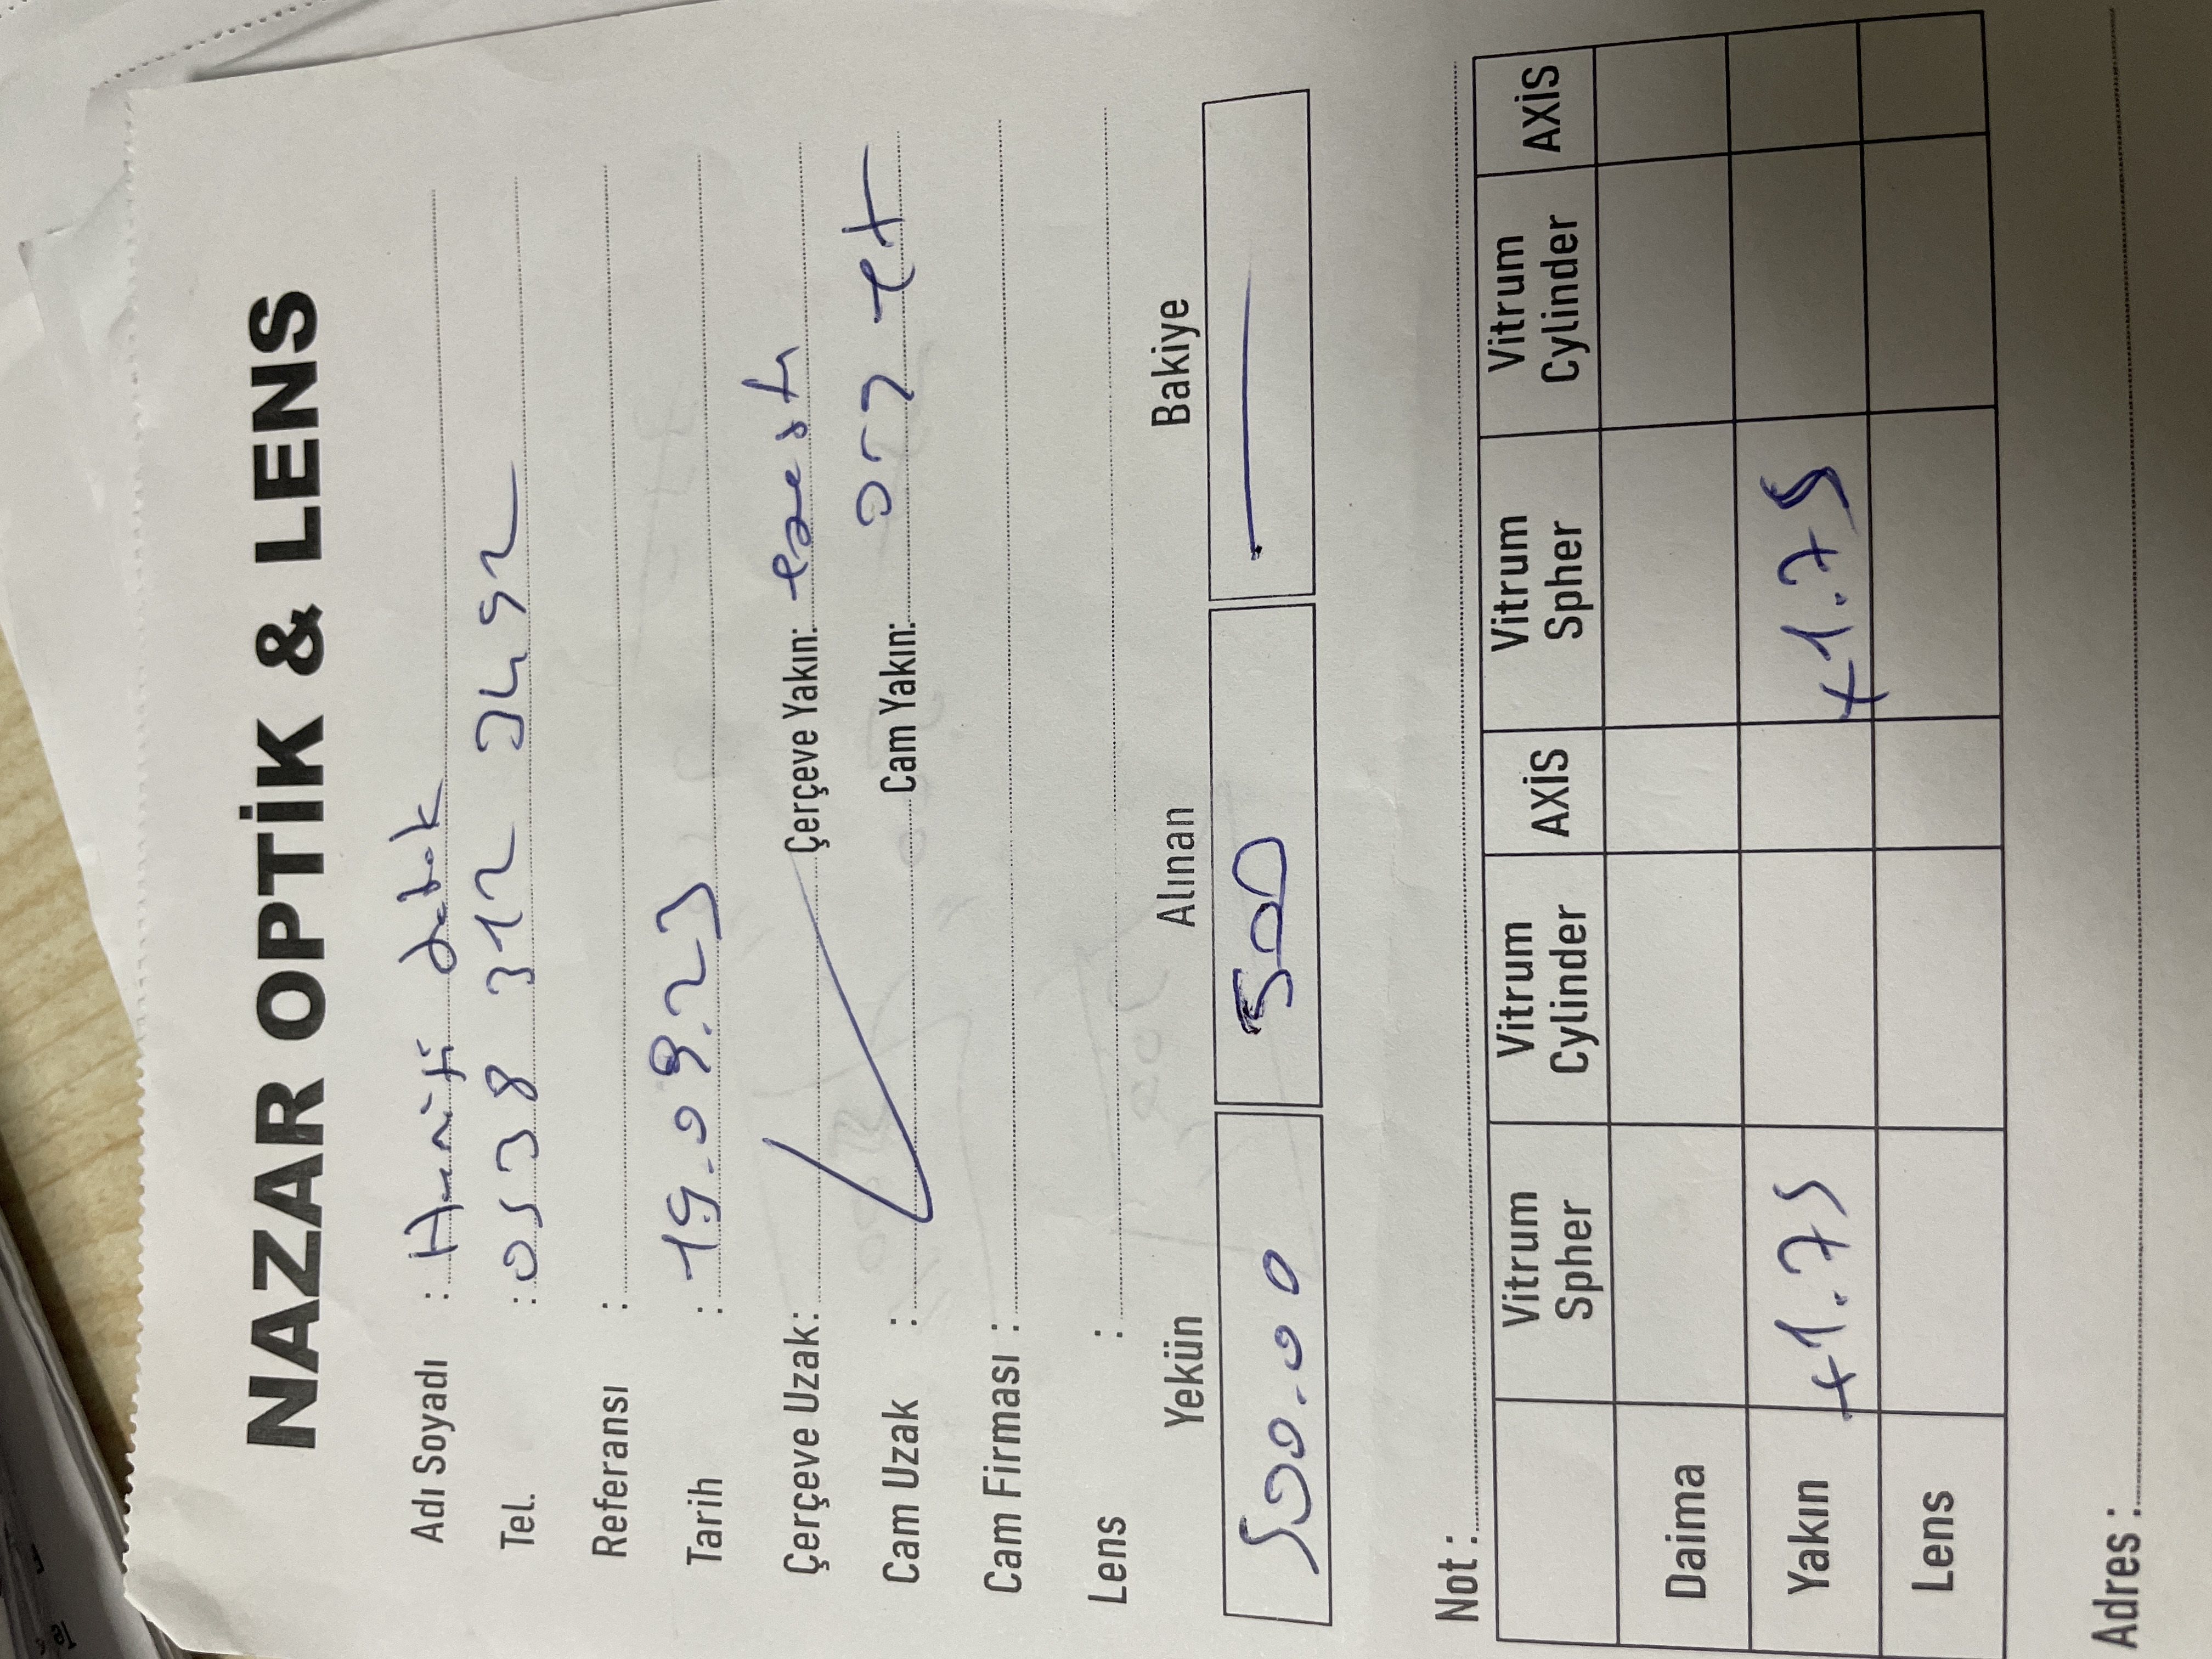 NAZAR OPTİK & LENS
Adı Soyadı :
Tel. : 0538 312 3492
Referansı :
Tarih : 19.09.23
Çerçeve Uzak: Çerçeve Yakın:
Cam Uzak : Cam Yakın:
Cam Firması :
Lens :
Yekün Alınan Bakiye
500.00 500 —
Not :
Vitrum Spher Vitrum Cylinder AXİS Vitrum Spher Vitrum Cylinder AXİS
Daima
Yakın +1.75 +1.75
Lens
Adres :